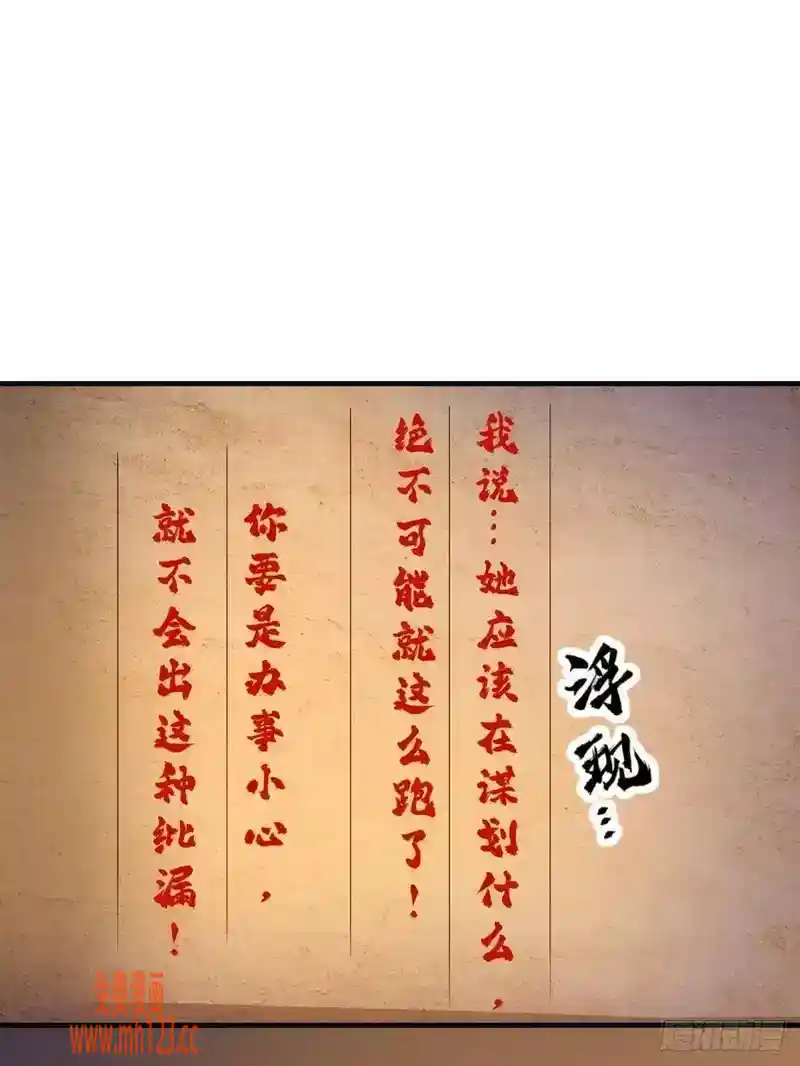 浮现…
我说…她应该在谋划什么，
绝不可能就这么跑了！
你要是办事小心，
就不会出这种纰漏！
免费漫画
www.mh123.cc